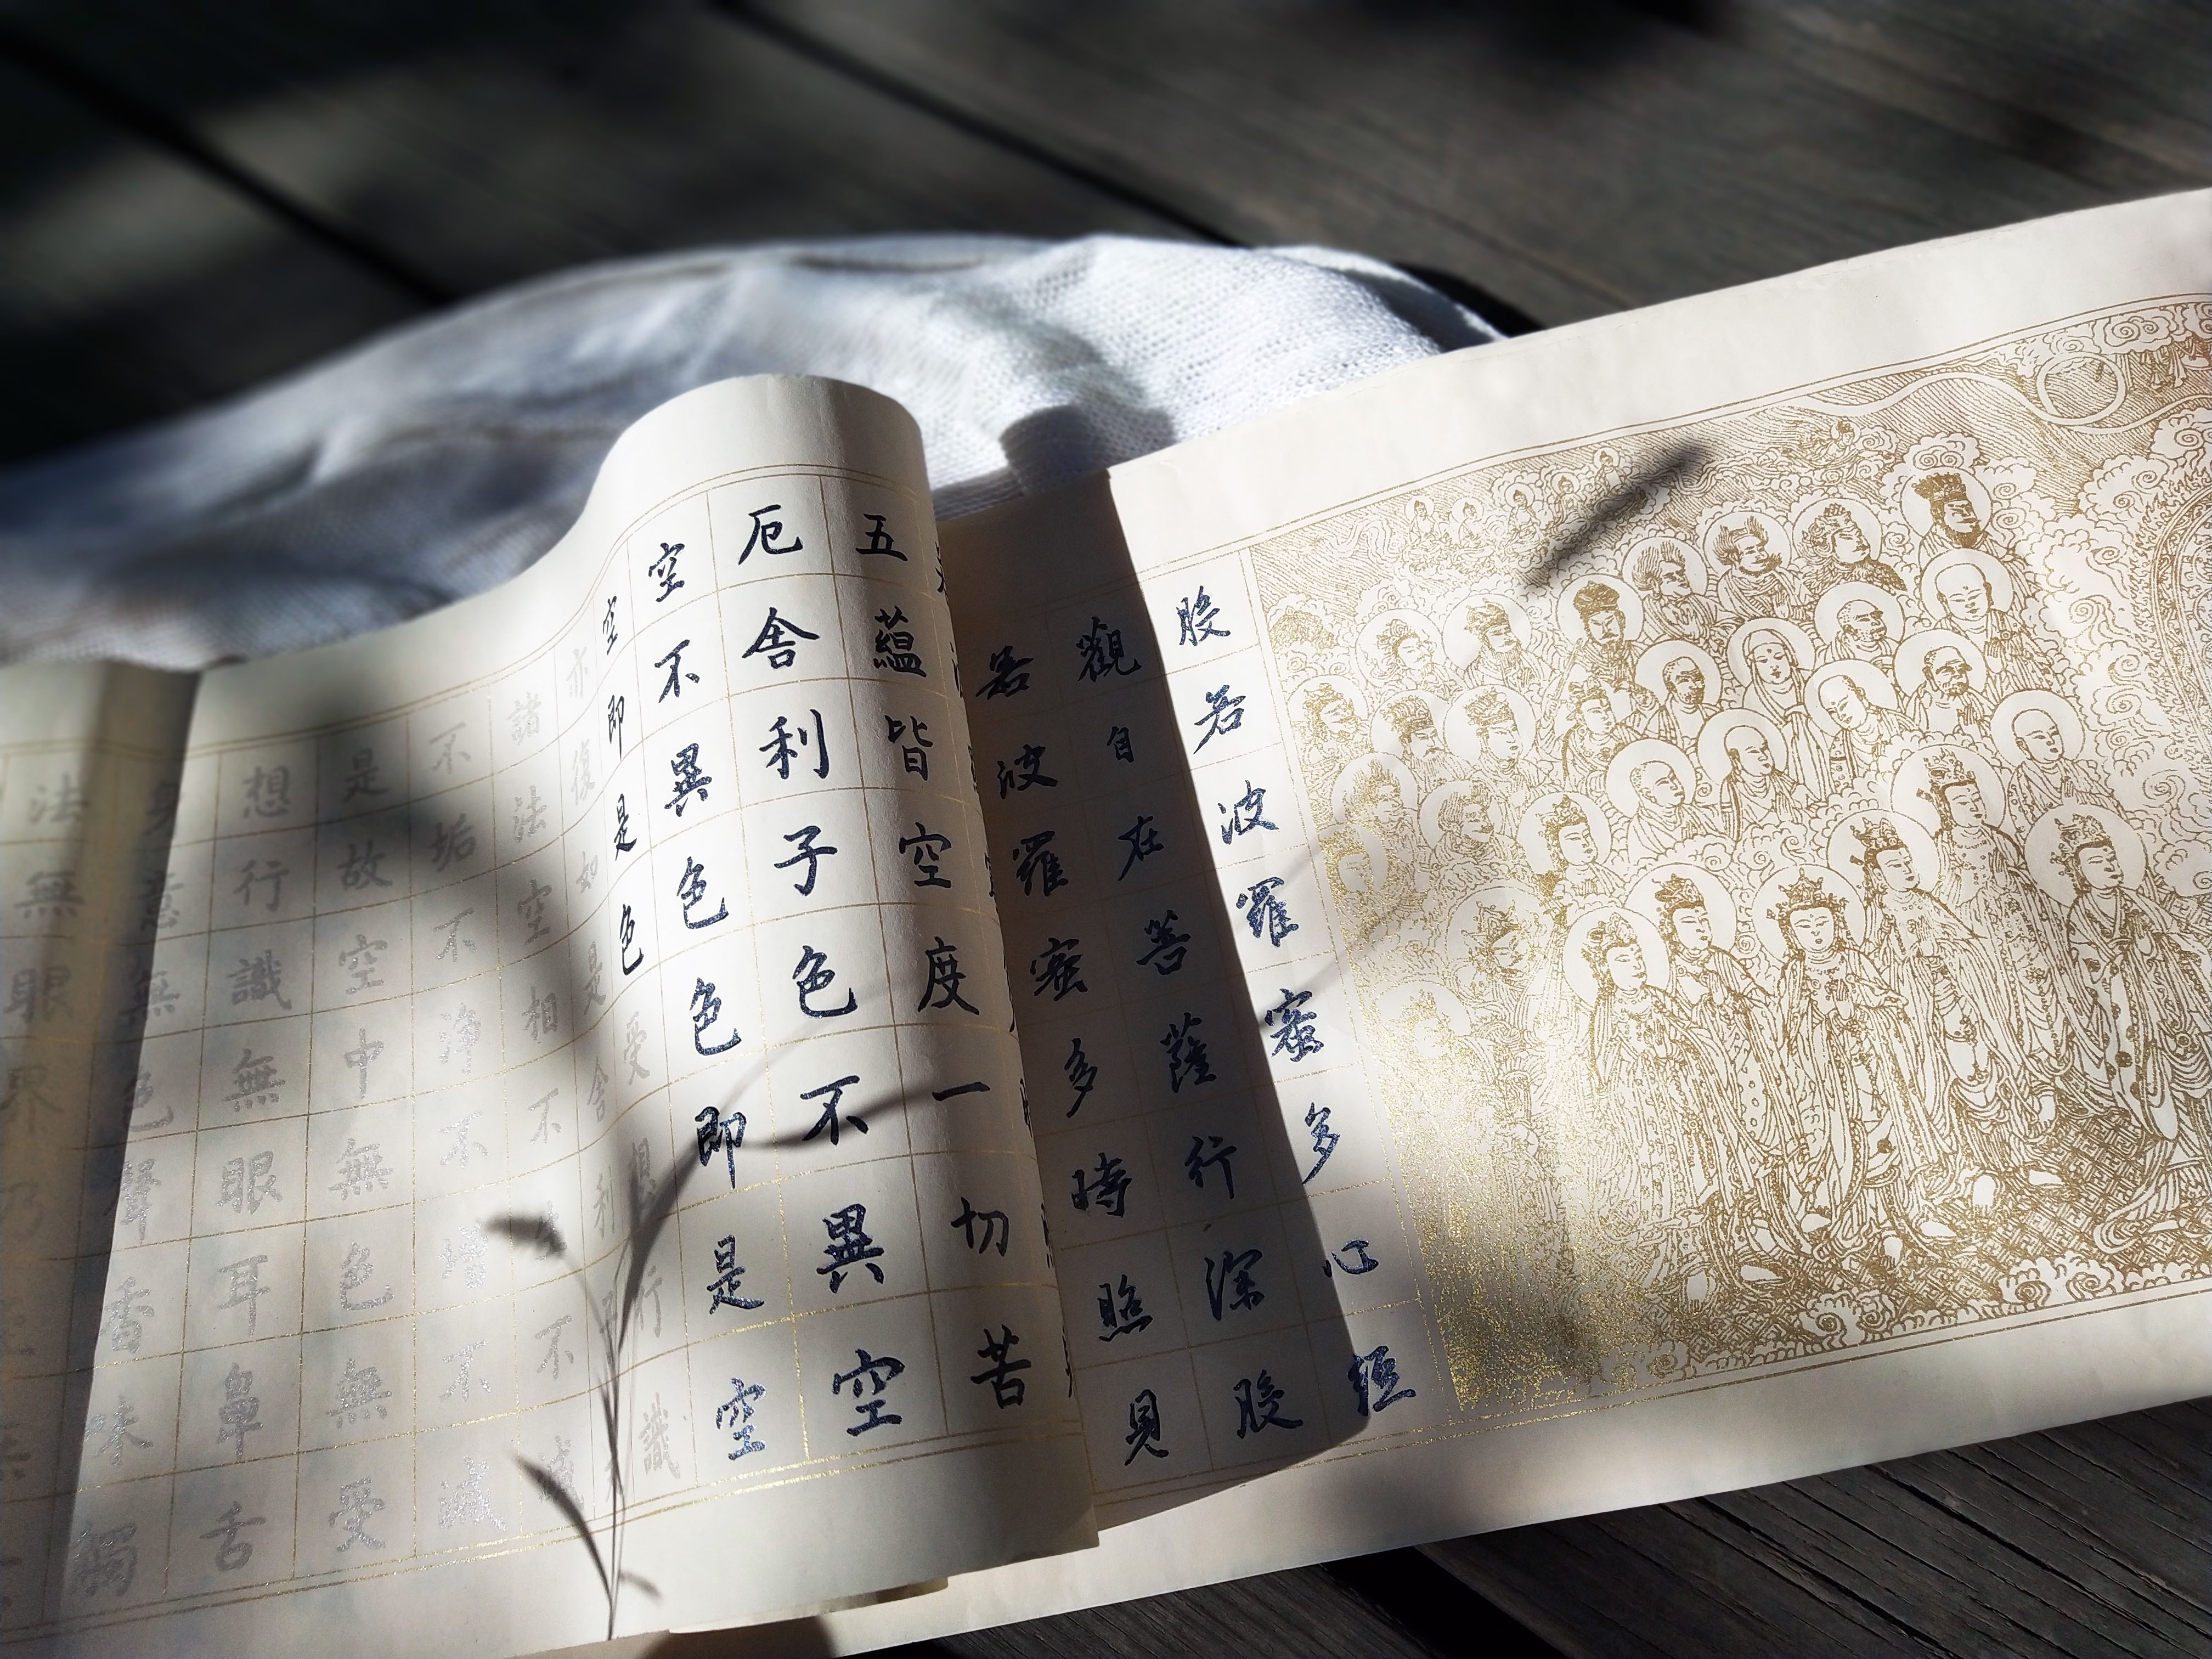 般若波羅蜜多心經
觀自在菩薩行深般
若波羅蜜多時照見
五蘊皆空度一切苦
厄舍利子色不異空
空不異色色即是空
空即是色受想行識
亦復如是舍利子
諸法空相不生不滅
不垢不淨不增不減
是故空中無色無受
想行識無眼耳鼻舌
身意無色聲香味觸
法無眼界乃